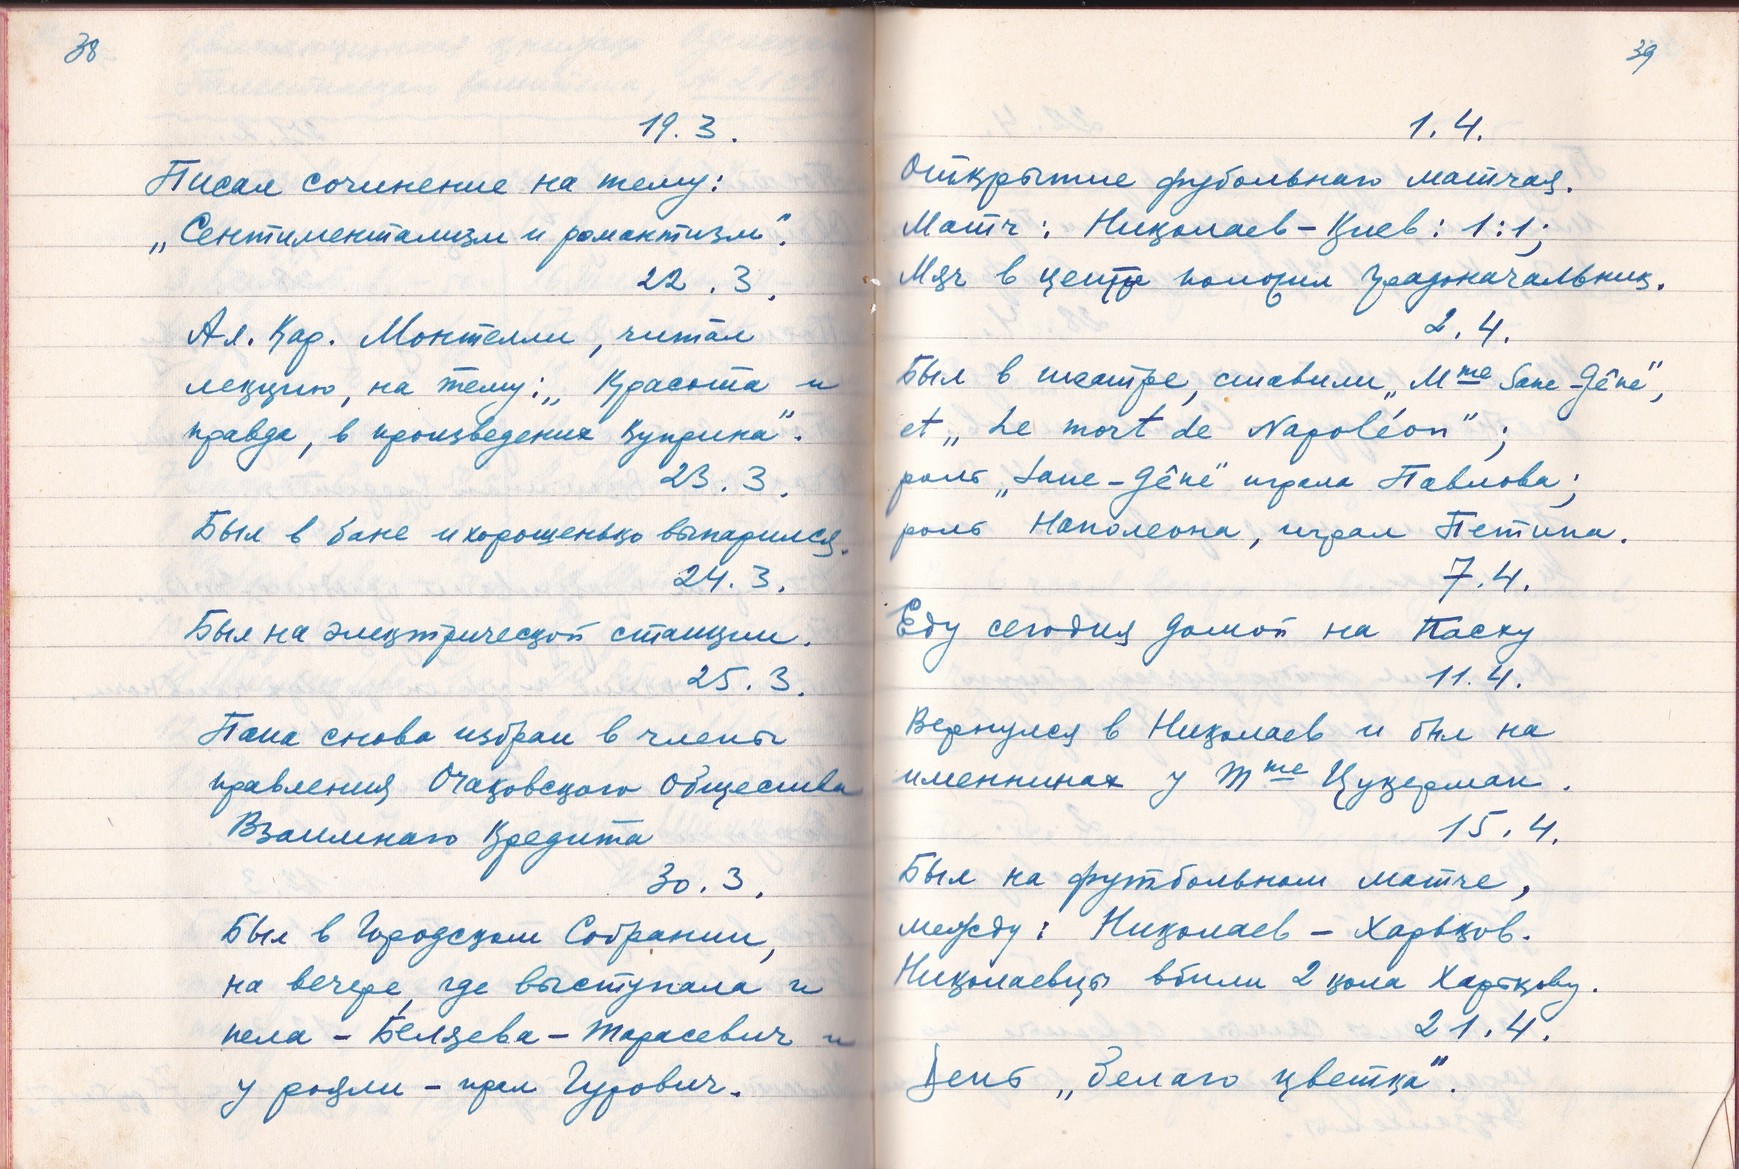 38
19.3.
Писал сочинение на тему:
„Сентиментализм и романтизм".
22.3.
Ал. Кар. Монтелли, читал
лекцию, на тему: „Красота и
правда, в произведених Куприна".
23.3.
Был в бане и хорошенько выпарился.
24.3.
Был на электрической станции.
25.3.
Папа снова избран в члены
правления Очаковского Общества
Взаимнаго Кредита
30.3.
Был в Городском Собрании,
на вечере, где выступала и
пела – Беляева – Тарасевич и
у рояли – Гурович.
39
1.4.
Открытие футбольнаго матчая.
Матч: Николаев – Киев: 1:1;
Мяч в центр положил Градоначальник.
2.4.
Был в театре, ставили „Mme Sane-Gêne",
et „Le mort de Napoléon";
роль „Sane-Gêne" играла Павлова;
роль Наполеона, играл Петипа.
7.4.
Еду сегодня домой на Пасху
11.4.
Вернулся в Николаев и был на
именинах у Mme Цукерман.
15.4.
Был на футбольном матче,
между: Николаев – Харьков.
Николаевцы вбили 2 гола Харькову.
21.4.
День „Белаго цветка".